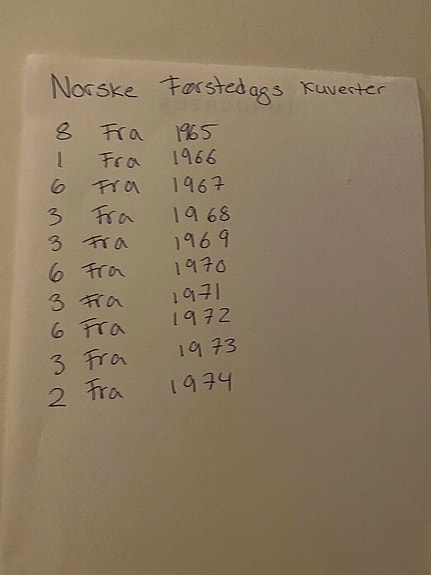 Norske Førstedags Kuverter
8 Fra 1965
1 Fra 1966
6 Fra 1967
3 Fra 1968
3 Fra 1969
6 Fra 1970
3 Fra 1971
6 Fra 1972
3 Fra 1973
2 Fra 1974